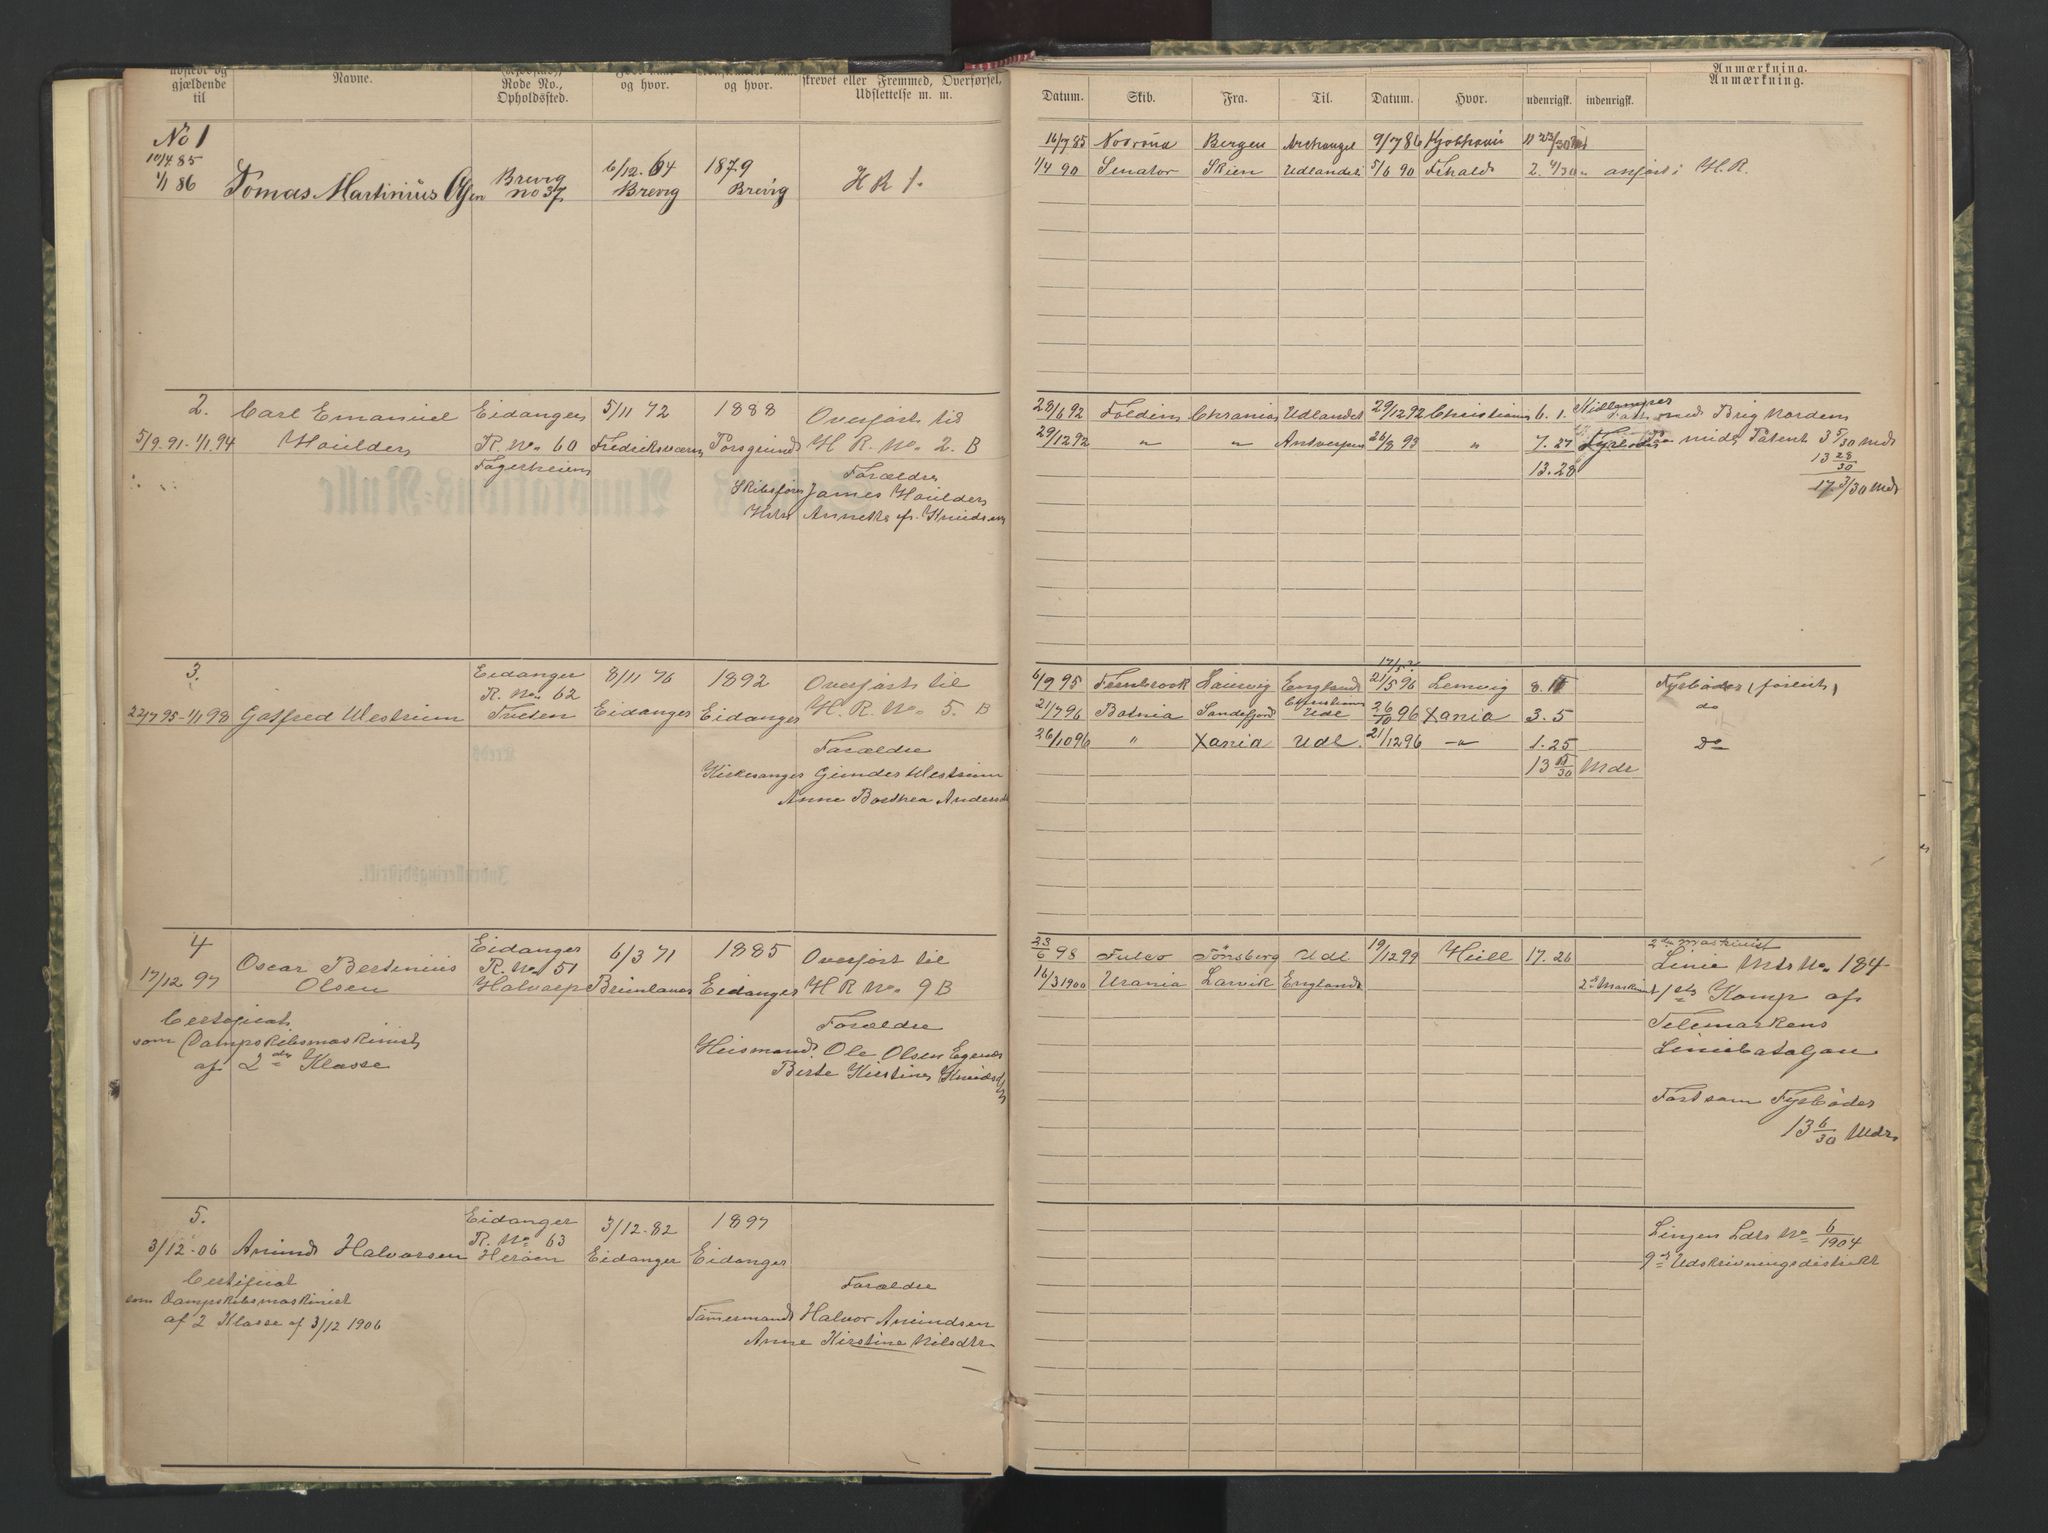 gjældende til
Navne.
Rode No., Opholdssted.
og hvor.
og hvor.
skrevet eller Fremmed, Overførsel, Udslettelse m. m.
Datum.
Skib.
Fra.
Til.
Datum.
Hvor.
udenrigsk.
indenrigsk.
Anmærkning.
Anmærkning.
No 1
10/4 85
1/1 86
Tomas Martinius Olsen
Brevig
no 37
6/12. 64
Brevig
1879
Brevig
H R 1.
16/7 85 Bergen Archangel 9/7 86 11 23/30 Md
1/4 90 Senator Skien Udlandet 5/6 90 2. 4/30 " anført i H. R.
2.
5/9. 91 - 1/1 94
Carl Emanuel
Houlder
Eidanger
R. No 60
5/11 72
Fredriksværn
1888
Porsgrund
Overført til
H. R. No. 2. B
Forældre
Skibsfører James Houlder
Annette f. Knudsen
28/6 92 Chrania Udlandet 29/12 92 Christiania 6. 1. med Brig Norden
29/12 92 " " Antwerpen 26/8 93 " 7. 27 Patent 3 5/30 Mdr
13. 28
13 28/30
17. 3/30 Mdr
3.
22/7 95 - 1/1 98
Gotfred Westrum
Eidanger
R. No. 62
8/11 76
Eidanger
1892
Eidanger
Overført til
H. R. No. 5. B
Forældre
Kirkesanger Gunder Westrum
Anne Borthea Andersdr
6/9 95 Fernbrook England 21/5 96 Lemvig 8. Fyrbøder
21/7 96 Botnia Sandefjord Udl 26/10 96 Xania 3. 5 do
26/10 96 " Xania Udl. 21/12 96 - " 1. 25 Do
13 Mdr
4
17/12 97
Oscar Bertinius
Olsen
Eidanger
R. No 51
6/3 71
Brunlanes
1885
Eidanger
Overført til
H R No. 9 B
Certificat
som Dampskibsmaskinist
af 2den Klasse
Forældre
Husmand. Ole Olsen
Berte Kirstine Knudsdtr
23/6 98 Tønsberg Udl 19/12 99 Hull 17. 26 2den Maskinist
16/3 1900 Urania Larvik England 2den Maskinist
Linie Mds No. 184
1ste Komp af
Telemarkens
Liniebataljon
Fart som Fyrbøder
13 6/30 Mdr
5.
3/12 - 06
Amund Halvorsen
Eidanger
R. No 63
Herøen
3/12 - 82
Eidanger
1897
Eidanger
Certificat
som Dampskibsmaskinist
af 2 Klasse af 3/12 1906
Forældre
Tømmermand Halvor Amundsen
Anne Kirstine Nilsdtr
No 6/1904
9de Udskrivningsdistrikt